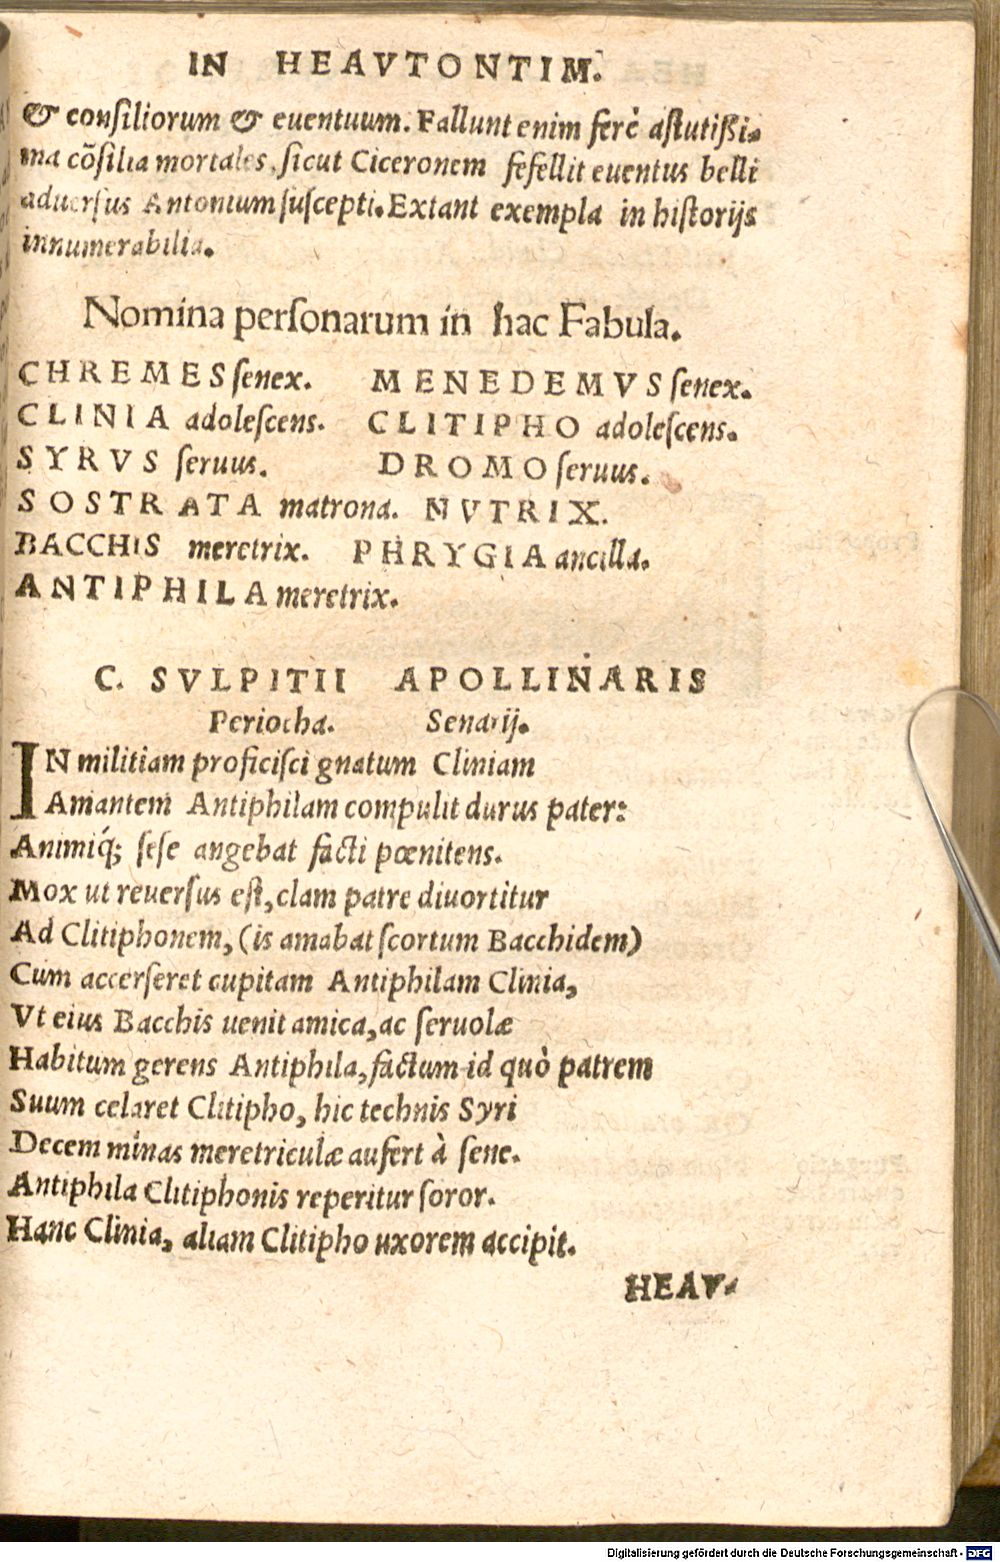 IN HEAVTONTIM.
& conſiliorum & euentuum. Fallunt enim ferè aſtutißi-
ma cõſilia mortales, ſicut Ciceronem fefellit euentus belli
aduerſus Antonium ſuſcepti. Extant exempla in hiſtorijs
innumerabilia.
Nomina perſonarum in hac Fabula.
CHREMES ſenex. MENEDEMVS ſenex.
CLINIA adoleſcens. CLITIPHO adoleſcens.
SYRVS ſeruus. DROMO ſeruus.
SOSTRATA matrona. NVTRIX.
BACCHIS meretrix. PHRYGIA ancilla.
ANTIPHILA meretrix.
C. SVLPITII APOLLINARIS
Periocha. Senarij.
IN militiam proficiſci gnatum Cliniam
Amantem Antiphilam compulit durus pater:
Animiq́; ſeſe angebat facti pœnitens.
Mox ut reuerſus eſt, clam patre diuortitur
Ad Clitiphonem, (is amabat ſcortum Bacchidem)
Cum accerſeret cupitam Antiphilam Clinia,
Vt eius Bacchis uenit amica, ac ſeruolæ
Habitum gerens Antiphila, factum id quò patrem
Suum celaret Clitipho, hic technis Syri
Decem minas meretriculæ aufert à ſene.
Antiphila Clitiphonis reperitur ſoror.
Hanc Clinia, aliam Clitipho uxorem accipit.
HEAV-
Digitalisierung gefördert durch die Deutsche Forschungsgemeinschaft - DFG